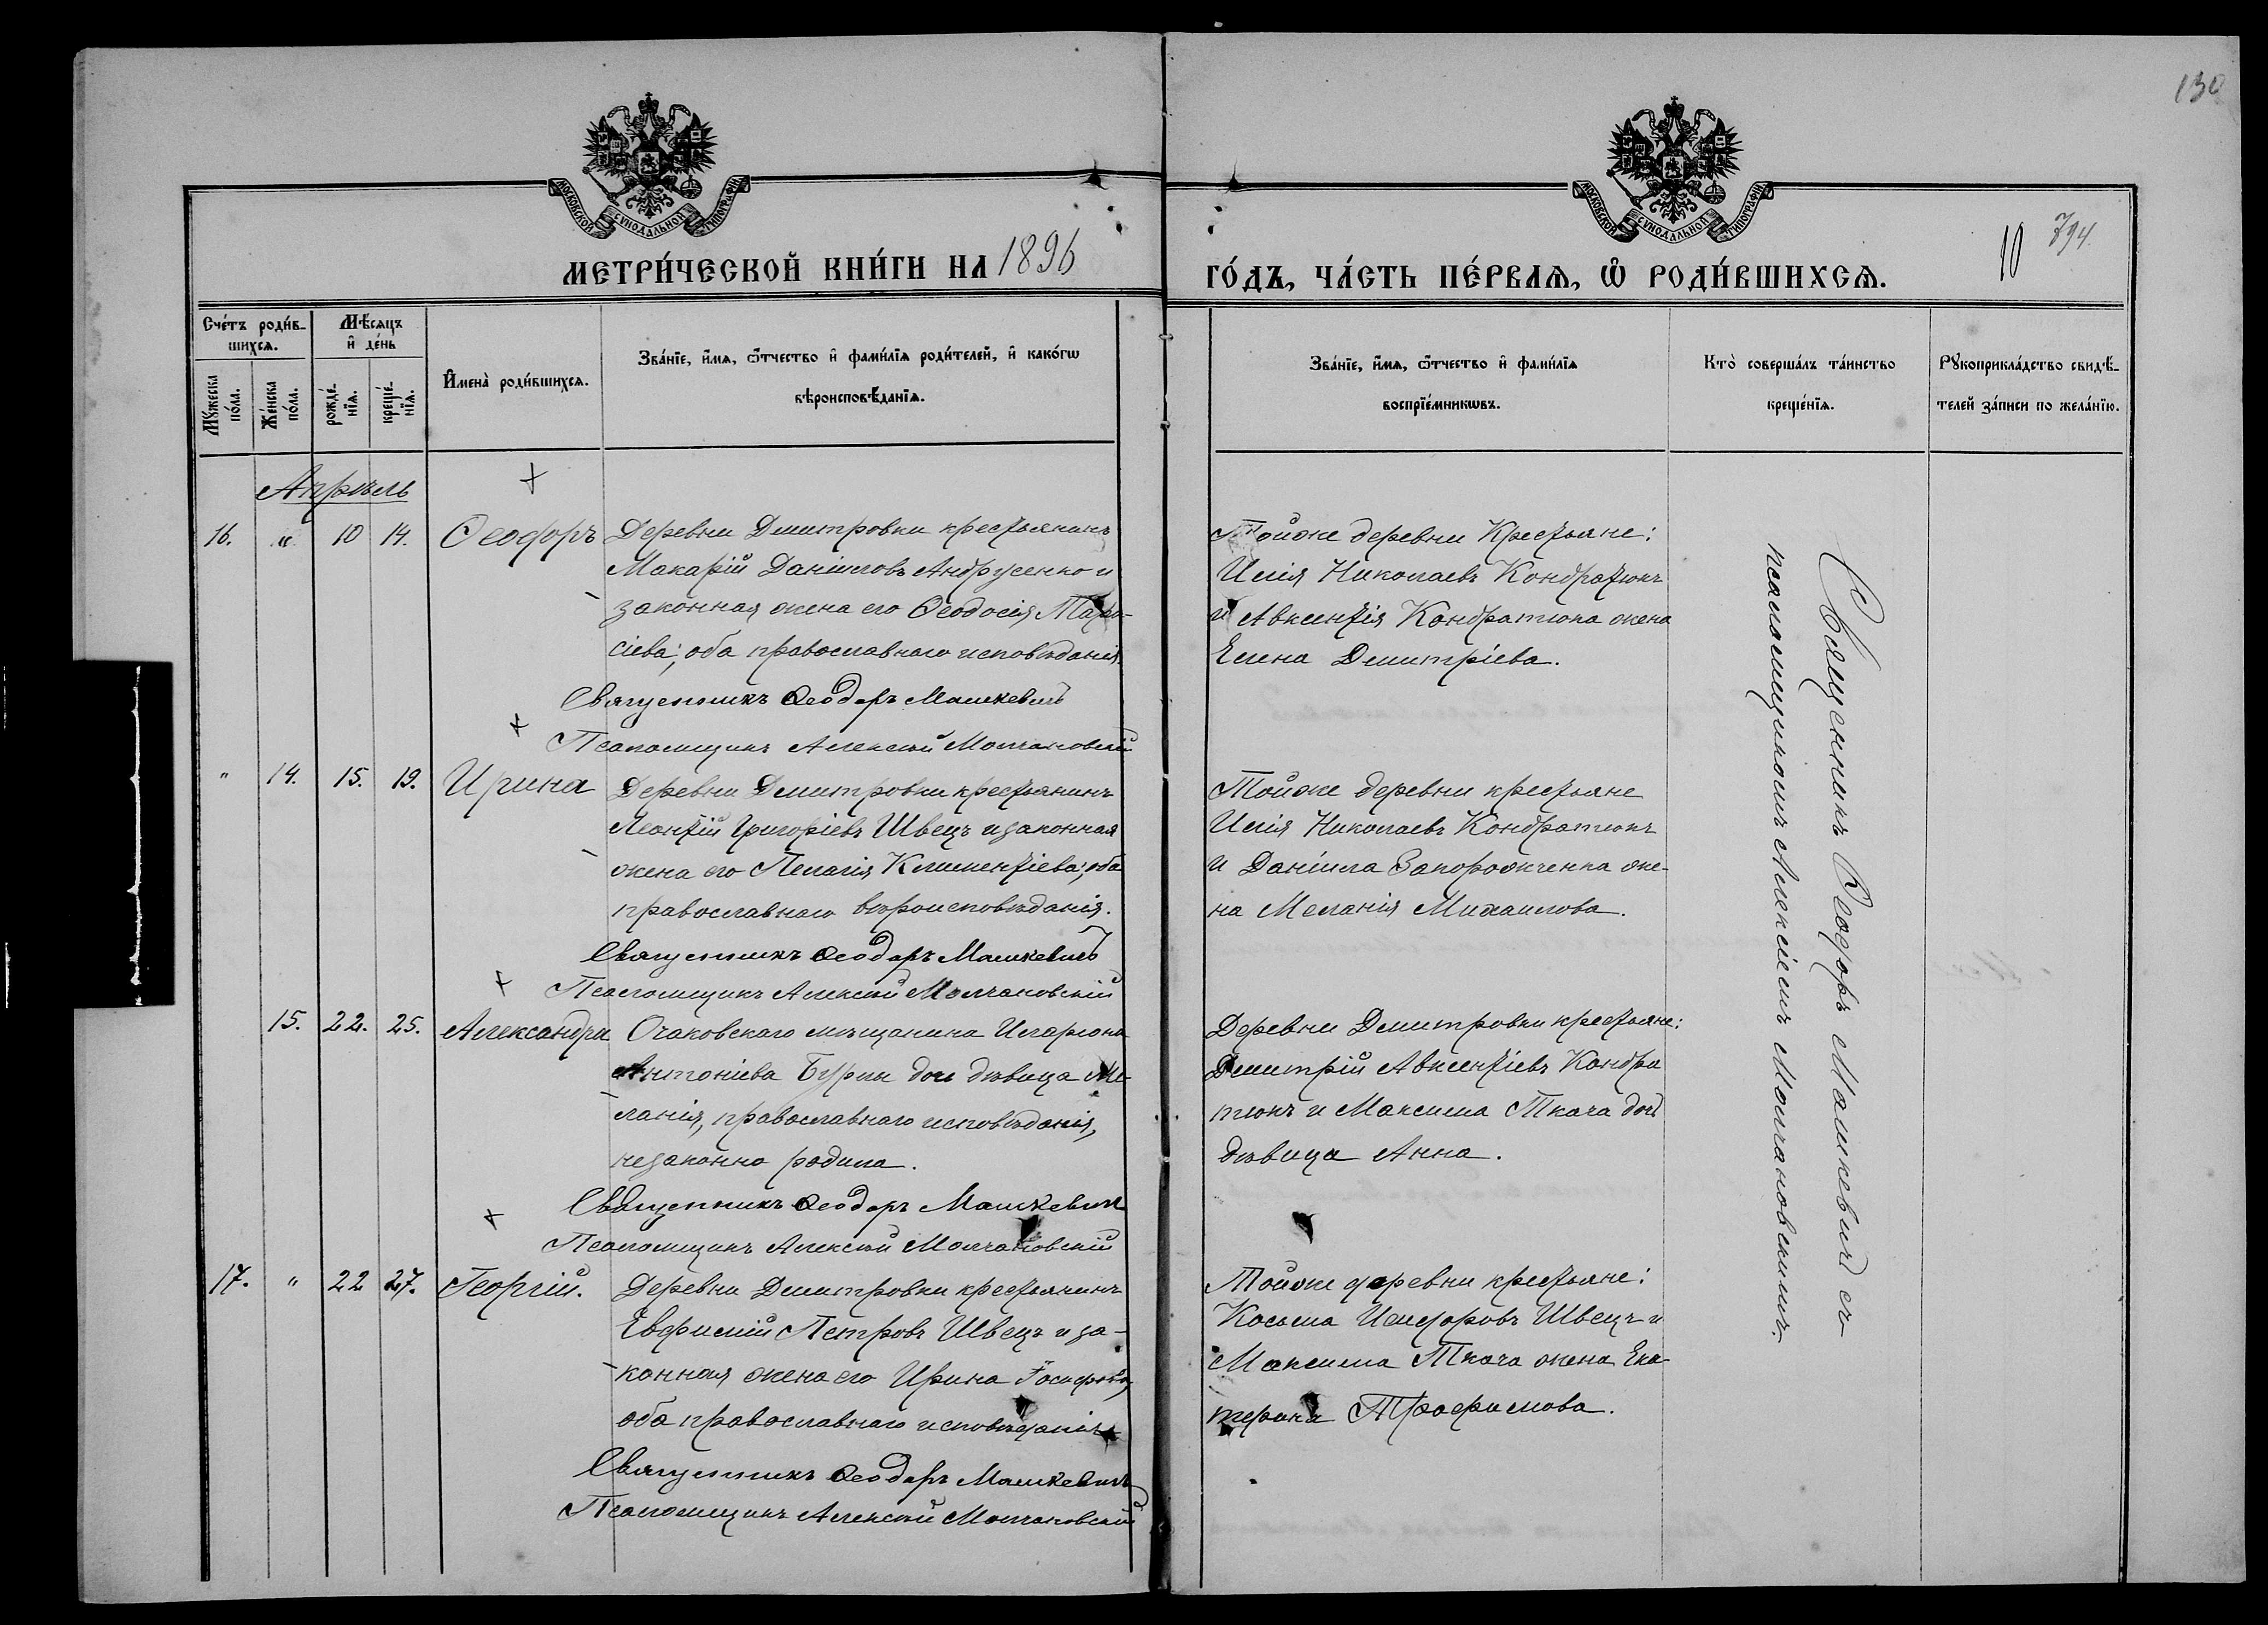 130
МОСКОВСКОЙ СѴНОДАЛЬНОЙ ТИПОГРАФІИ
МОСКОВСКОЙ СѴНОДАЛЬНОЙ ТИПОГРАФІИ
МЕТРИ́ЧЕСКОЙ КНИ́ГИ НА 1896
ГО́ДЪ, ЧА́СТЬ ПЕ́РВАѦ, Ѡ҆ РОДИ́ВШИХСѦ.
10 794.
Сче́тъ роди́в-
шихсѧ.
Мѣ́сѧцъ
и҆ де́нь
Мꙋ́жеска
по́ла.
Же́нска
по́ла.
рожде́-
нїѧ.
креще́-
нїѧ.
И҆мена̀ роди́вшихсѧ.
Зва́нїе, и҆́мѧ, ѻ҆́тчество и҆ фами́лїѧ роди́телей, и҆ како́гѡ
вѣроисповѣ́данїѧ.
Зва́нїе, и҆́мѧ, ѻ҆́тчество и҆ фами́лїѧ
воспрїе́мникѡвъ.
Кто̀ соверша́лъ та́инство
креще́нїѧ.
Рꙋкоприкла́дство свидѣ́-
телей за́писи по жела́нїю.
Апрѣль
16. " 10 14. Ѳеодоръ Деревни Димитровки крестьянинъ
Макарій Даніиловъ Андрусенко и
законная жена его Ѳеодосія Тара-
сіева; оба православнаго исповѣданія.
Священникъ Ѳеодоръ Машкевичъ
Псаломщикъ Алексій Молчановскій
Тойже деревни Крестьяне:
Илія Николаевъ Кондратюкъ
и Авксентія Кондратюка жена
Елена Димитріева.
" 14. 15. 19. Ирина Деревни Димитровки крестьянинъ
Леонтій Григоріевъ Швецъ и законная
жена его Пелагія Климентіева; оба
православнаго вѣроисповѣданія.
Священникъ Ѳеодоръ Машкевичъ
Псаломщикъ Алексій Молчановскій
Тойже деревни крестьяне
Илія Николаевъ Кондратюкъ
и Даніила Запорожченка же-
на Меланія Михаилова.
15. 22. 25. Александра Очаковскаго мѣщанина Иларіона
Антоніева Бурки дочь дѣвица Ме-
ланія, православнаго исповѣданія,
незаконно родила.
Священникъ Ѳеодоръ Машкевичъ
Псаломщикъ Алексій Молчановскій
Деревни Димитровки крестьяне:
Димитрій Авксентіевъ Кондра
тюкъ и Максима Ткача дочь
дѣвица Анна.
17. " 22 27. Георгій. Деревни Димитровки крестьянинъ
Евфимій Петровъ Швецъ и за-
конная жена его Ирина Іосифова,
оба православнаго исповѣданія
Священникъ Ѳеодоръ Машкевичъ
Псаломщикъ Алексій Молчановскій
Тойже деревни крестьяне:
Косьма Никифоровъ Швецъ и
Максима Ткача жена Ека-
терина Трофимова.
Священникъ Ѳеодоръ Машкевичъ съ
псаломщикомъ Алексіемъ Молчановскимъ.